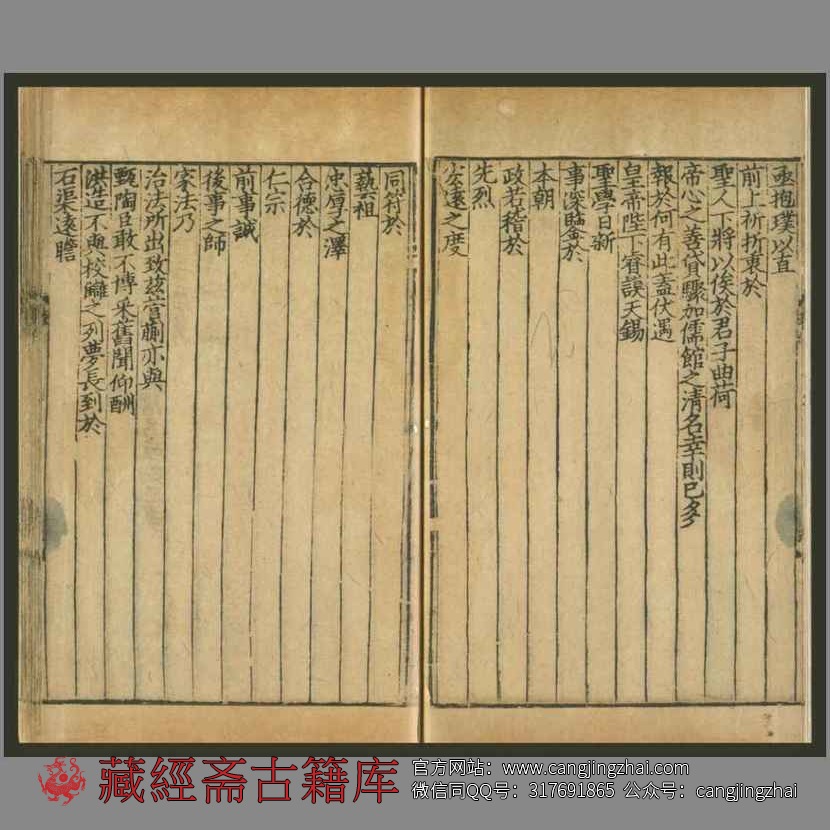 亟抱璞以直
前上祈折衷於
聖人下將以俟於君子曲荷
帝心之善貸驟加儒館之清名幸則已多
報於何有此蓋伏遇
皇帝陛下睿謨天錫
聖學日新
事深監於
本朝
政若稽於
先烈
宏遠之度
同符於
藝祖
忠厚之澤
合德於
仁宗
前事誠
後事之師
家法乃
治法所出致玆菅蒯亦與
甄陶臣敢不博采舊聞仰酬
洪造不與校讎之列夢長到於
石渠遠瞻
藏經斋古籍库
官方网站：www.cangjingzhai.com
微信同QQ号：317691865 公众号：cangjingzhai